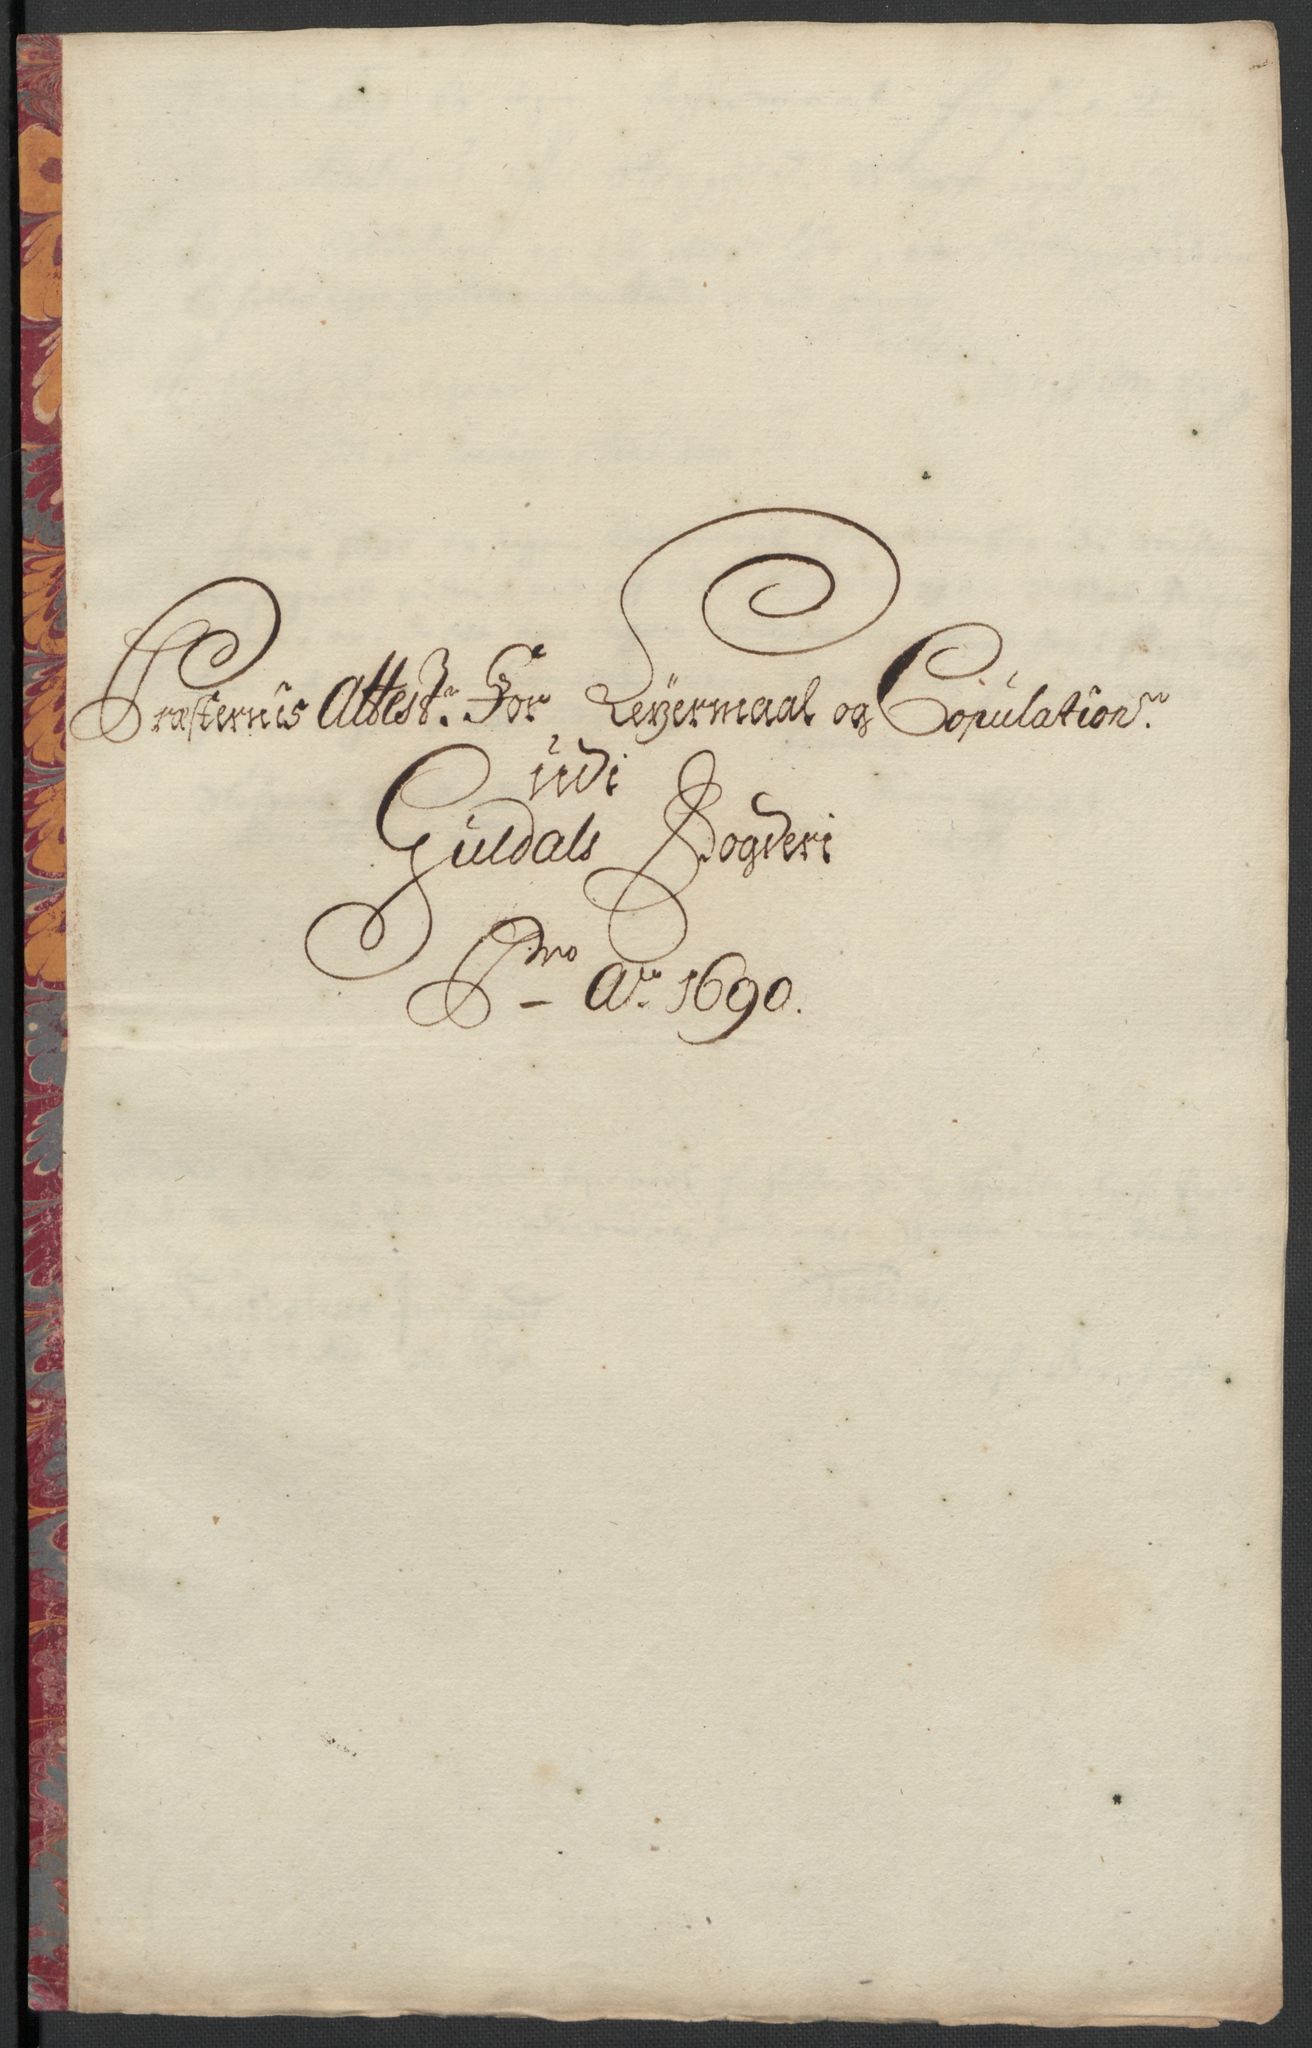 Præsternis Attest: For Leyermaal og Copulation:
udi
Guldals Fogderi
Pro Ao: 1690.